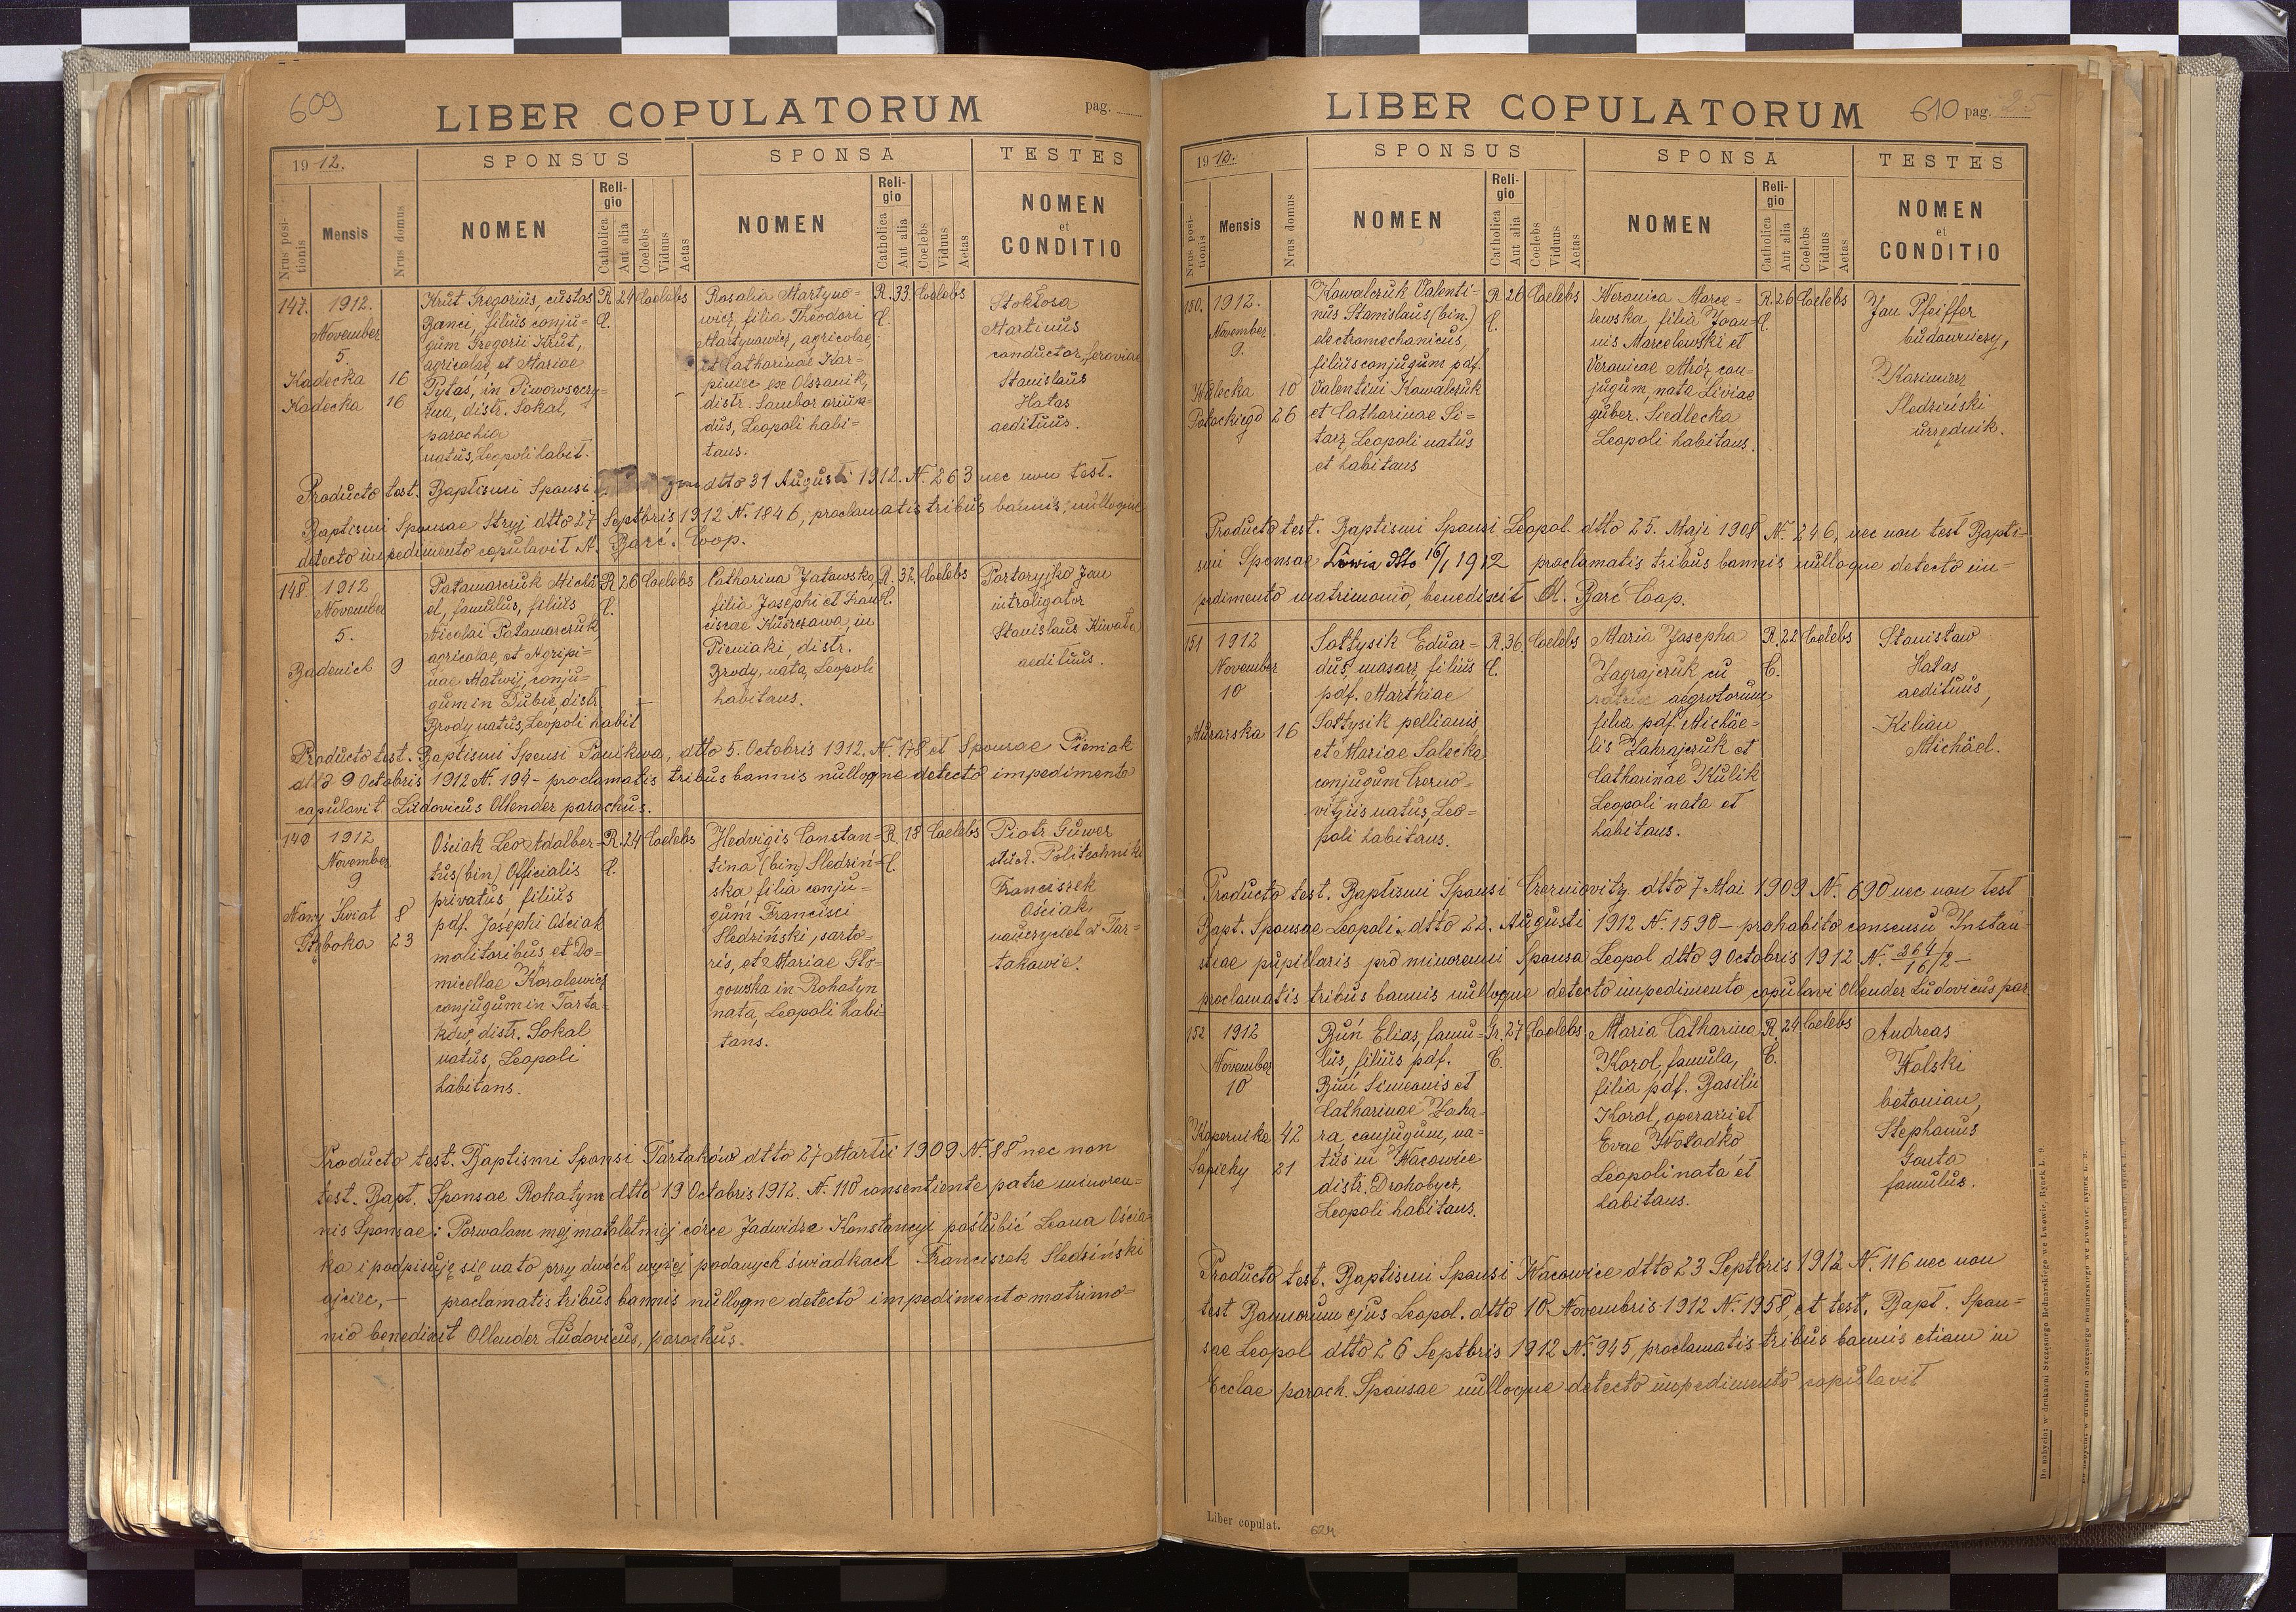 609
LIBER COPULATORUM
pag.
1912.
SPONSUS
SPONSA
TESTES
Nrus positionis
Mensis
Nrus domus
NOMEN
Religio
Catholica
Aut alia
Coelebs
Viduus
Aetas
NOMEN
Religio
Catholica
Aut alia
Coelebs
Viduus
Aetas
NOMEN
et
CONDITIO
147.
1912.
November
5.
Kadecka 16
Kadecka 16
Krut Gregorius, custos
Banci, filius conju-
gum Gregorii Krut,
agricolae, et Mariae
Pytas, in Piwowszczy-
zna, distr. Sokal,
parochia
natus, Leopoli habit.
R. C.
24
Coelebs
Rosalia Martyno-
wicz, filia Theodori
Martynowicz, agricolae,
et Catharinae Kar-
piniec ex Olszanik,
distr. Sambor oriun-
dus, Leopoli habi-
tans.
R. C.
33.
Coelebs
Stokłosa
Martinus
conductor feroviae
Stanislaus
Hałas
aedituus.
Producto test. Baptismi Sponsi dtto 31 Augusti 1912. N. 263 nec non test.
Baptismi Sponsae Stryj dtto 27 Septbris 1912 N. 1846, proclamatis tribus bannis, nulloque
detecto impedimento copulavit M. Barć. Coop.
148.
1912
November
5.
Badenich 9
Patamarczuk Micha-
el, famulus, filius
Nicolai Patamarczuk,
agricolae, et Agripi-
nae Matwij, conju-
gum in Dubie, distr.
Brody natus, Leopoli habit
R. C.
26
Coelebs
Catharina Jatowsko
filia Josephi et Fran-
ciscae Kuszczawa, in
Pieniaki, distr.
Brody, nata, Leopoli
habitans.
R. C.
32.
Coelebs
Portaryjko Jan
introligator
Stanislaus Kiwała
aedituus.
Producto test. Baptismi Sponsi Ponikwa, dtto 5. Octobris 1912, N. 178 et Sponsae Pieniak
dtto 9 Octobris 1912 N. 194 - proclamatis tribus bannis nulloque detecto impedimento
copulavit Ludovicus Ollender parochus.
149
1912
November
9
Nowy Świat 8
Głęboka 23
Ościak Leo Adalber-
tus (bin) Officialis
privatus, filius
pdf. Josephi Ościak
molitoribus, et Do-
micellae Koralewicz
conjugum in Tarta-
ków, distr. Sokal
natus, Leopoli
habitans.
R. C.
24
Coelebs
Hedvigis Constan-
tina (bin) Sledziń-
ska filia conju-
gum Francisci
Sledziński, sarto-
ris, et Mariae Gło-
gowska in Rohatyn
nata, Leopoli habi-
tans.
R. C.
18
Coelebs
Piotr Guwer
stud. Politechniki
Franciszek
Ościak,
nauczyciel w Tar-
takowie.
Producto test. Baptismi Sponsi Tartaków dtto 27 Martii 1909 N. 88 nec non
test. Bapt. Sponsae Rohatyn dtto 19 Octobris 1912. N. 110 consentiente patre minoren-
nis Sponsae: Pozwalam mej małoletniej córce Jadwidze Konstancyi poślubić Leona Ościa-
ka i podpisuję się na to przy dwóch wyżej podanych świadkach Franciszek Sledziński
ojciec, — proclamatis tribus bannis nulloque detecto impedimento matrimo-
nio benedixit Ollender Ludovicus, parochus.
LIBER COPULATORUM
610 pag. 25
1912.
SPONSUS
SPONSA
TESTES
Nrus positionis
Mensis
Nrus domus
NOMEN
Religio
Catholica
Aut alia
Coelebs
Viduus
Aetas
NOMEN
Religio
Catholica
Aut alia
Coelebs
Viduus
Aetas
NOMEN
et
CONDITIO
150.
1912.
November
9.
Wulecka 10
Potockiego 26
Kowalczuk Valenti-
nus Stanislaus (bin.)
electromechanicus,
filius conjugum pdf.
Valentini Kowalczuk
et Catharinae Si-
tarz, Leopoli natus
et habitans
R. C.
26
Coelebs
Weronica Marce-
lewska, filia Joan-
nis Marcelewski et
Veronicae Mróz con-
jugum, nata Liviae
guber. Siedlecka
Leopoli habitans.
R. C.
26
Coelebs
Jan Pfeiffer
budowniczy,
Kazimierz
Sledziński
urzędnik.
Producto test. Baptismi Sponsi Leopol. dtto 25. Maji 1908 N. 246, nec non test Bapti-
smi Sponsae Liwia dtto 16/1 1912 proclamatis tribus bannis nulloque detecto im-
pedimento matrimonio, benedixit M. Barć Coop.
151
1912
November
10
Murarska 16
Sołtysik Eduar-
dus, masarz, filius
pdf. Mathiae
Sołtysik pellionis
et Mariae Salecka
conjugum Czerno-
vitziis natus, Leo-
poli habitans.
R. C.
36.
Coelebs
Maria Josepha
Zagrajczuk, cu
aegrotorum
filia pdf. Michae-
lis Zakrajczuk et
Catharinae Kulik
Leopoli nata et
habitans.
R. C.
22
Coelebs
Stanisław
Hałas
aedituus,
Kilian
Michael.
Producto test. Baptismi Sponsi Czerniovitz dtto 7 Mai 1909 N. 690 nec non test
Bapt. Sponsae Leopoli. dtto 22. Augusti 1912 N. 1590 - prohabito consensu Instan-
tiae pupillaris pro minorenni Sponsa Leopol dtto 9 Octobris 1912 N. 264/16/2 -
proclamatis tribus bannis nulloque detecto impedimento copulavi Ollender Ludovicus par.
152
1912
November
10
Kopernika 42
Sapiehy 21
Buń Elias, famu-
lus, filius pdf.
Buń Simeonis et
Catharinae Zaha-
ra, conjugum, na-
tus in Wacowice
distr. Drohobycz,
Leopoli habitans.
Gr. C.
27
Coelebs
Maria Catharina
Korol, famula,
filia pdf. Basilii
Korol, operarii et
Evae Wołodko
Leopoli nata et
habitans.
R. C.
24
Coelebs
Andreas
Wolski
betoniar,
Stephanus
Gouta
famulus.
Producto test. Baptismi Sponsi Wacowice dtto 23 Septbris 1912 N. 116 nec non
test Bannorum ejus Leopol. dtto 10 Novembris 1912 N. 1958, et test. Bapt. Spon-
sae Leopol dtto 26 Septbris 1912 N. 945, proclamatis tribus bannis etiam in
Ecclae paroch. Sponsae nulloque detecto impedimento copulavit
Liber copulat.
624
Do nabycia: w drukarni Szczęsnego Bednarskiego we Lwowie, Rynek L. 9.